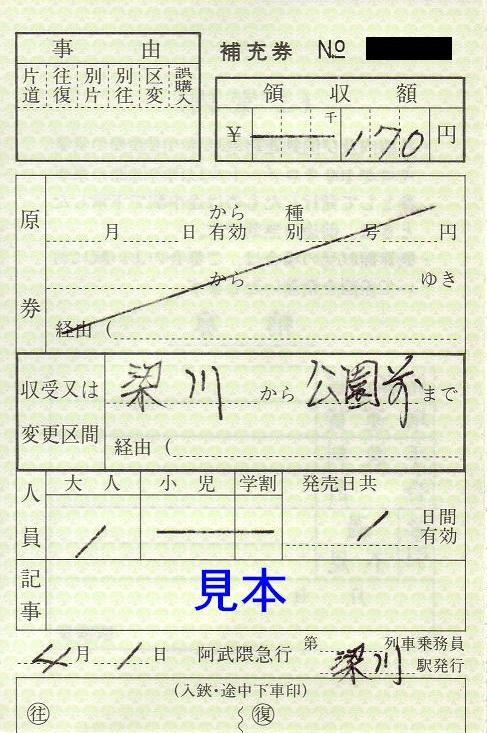 補充券 No
事由
片道 往復 別片 別往 区変 誤購入
領収額
￥ 千 170 円
原券
月 日 から有効 種別 号 円
から ゆき
経由（
収受又は変更区間
梁川 から 公園前 まで
経由（
人員
大人 小児 学割 発売日共
1 1 日間有効
記事
見本
4月 1日 阿武隈急行 第 列車乗務員
梁川 駅発行
（入鋏・途中下車印）
往 復